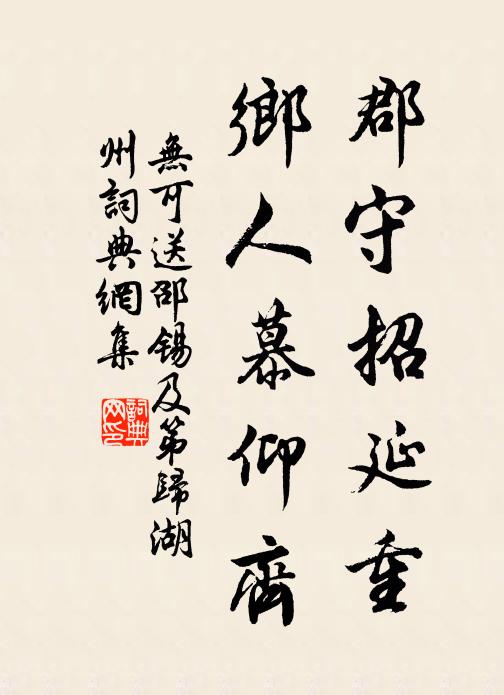 郡守招延重
鄉人慕仰齊
無可送邵錫及第歸湖
州詞典網集
詞典网印